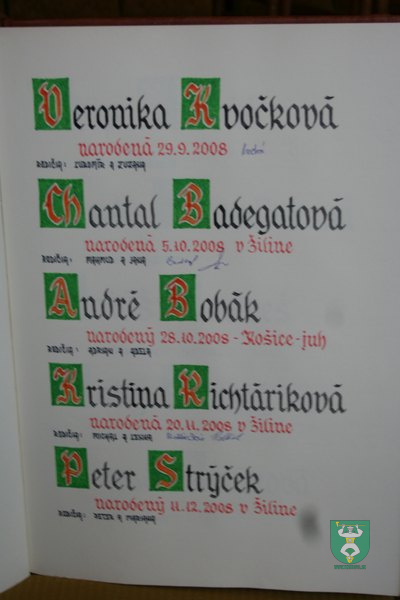 Veronika Kvočková
narodená 29.9.2008
rodičia: Ľubomír a Zuzana
Chantal Badegatová
narodená 5.10.2008 v Žiline
rodičia: Mahmud a Jana
André Bobák
narodený 28.10.2008 - Košice - juh
rodičia: Adrian a Adela
Kristína Richtáriková
narodená 20.11.2008 v Žiline
rodičia: Michal a
Peter Strýček
narodený 11.12.2008 v Žiline
rodičia: Peter a Mariana